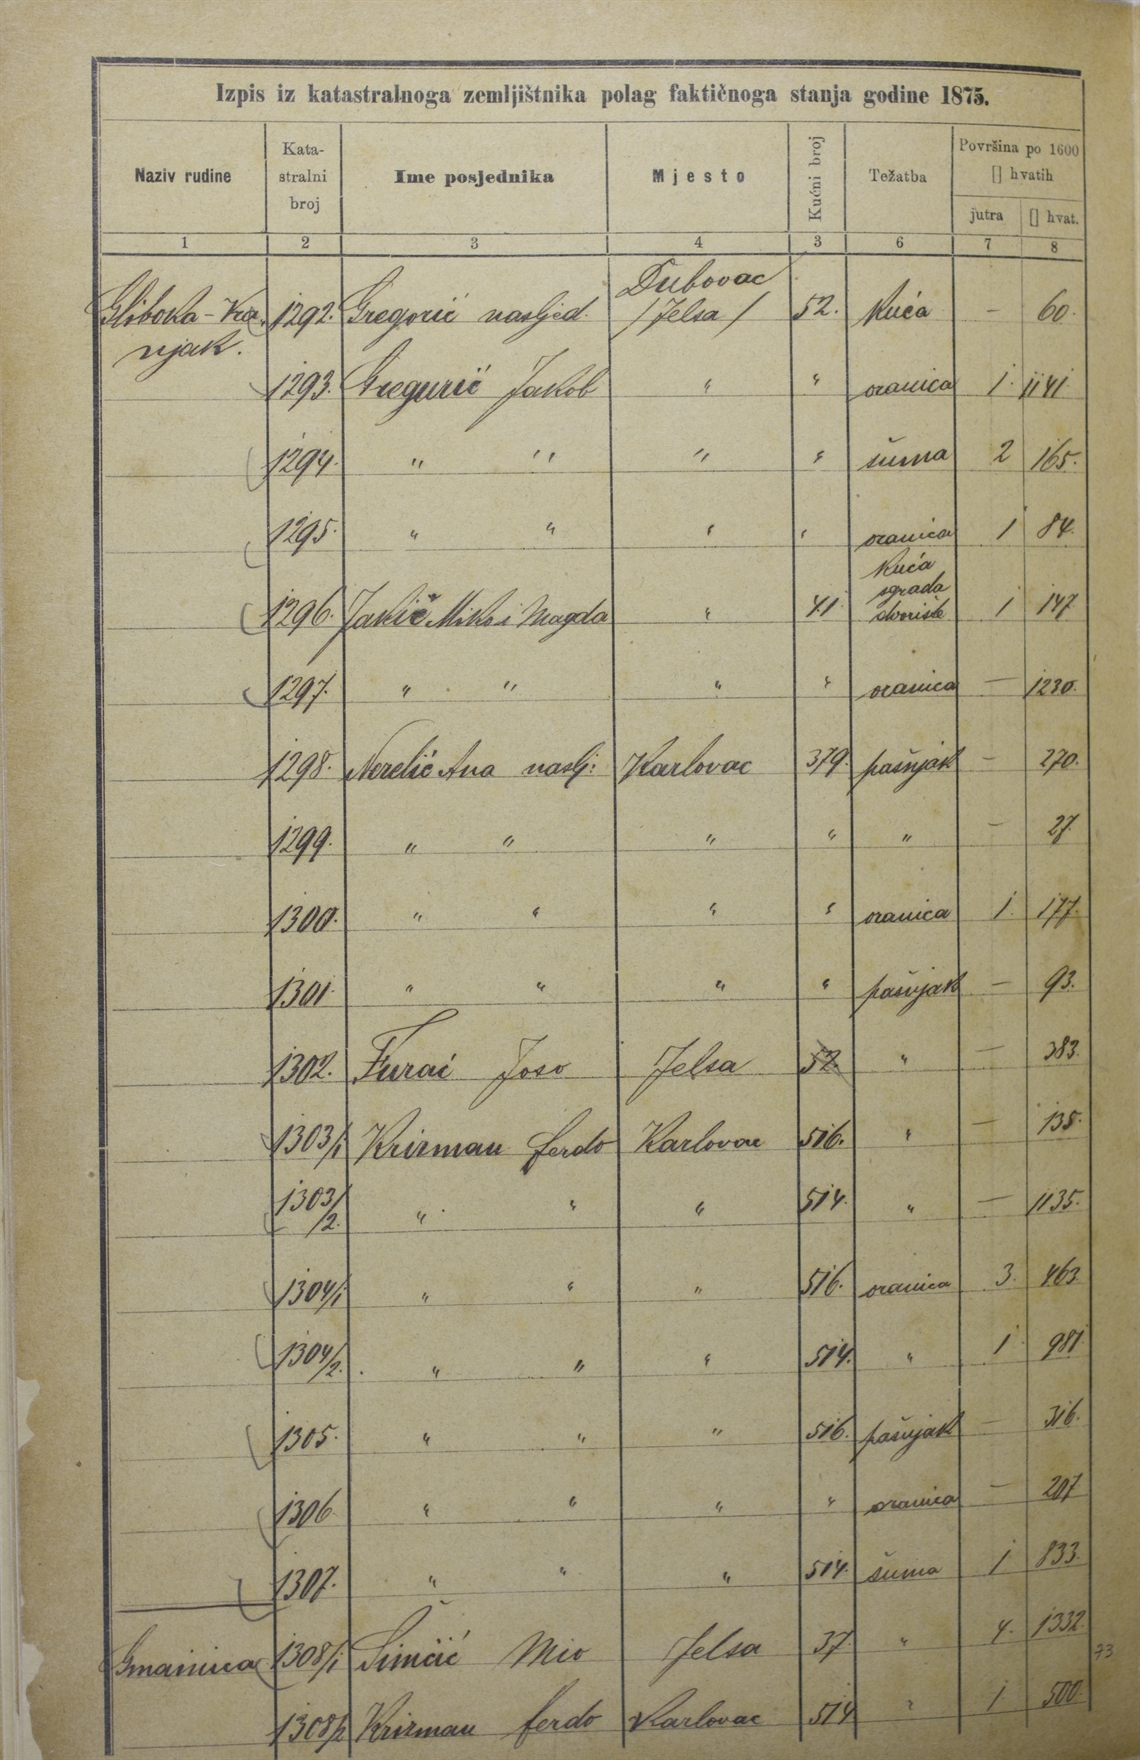 Izpis iz katastralnoga zemljištnika polag faktičnoga stanja godine 1875.
Naziv rudine | Kata-stralni broj | Ime posjednika | Mjesto | Kućni broj | Težatba | Površina po 1600 [] hvatih
jutra | [] hvat.
1 | 2 | 3 | 4 | 3 | 6 | 7 | 8
Dubovac
Globoka - Kra 1292. Gregorić nasljed. /Jelsa/ 52. Kuća — 60.
njak.
1293. Gregurić Jakob " " oranica 1. 1141
1294. " " " " šuma 2 165.
1295. " " " " oranica 1 84.
Kuća
sgrada
1296. Jakić Miko i Magda " 41 dvorište 1 147
1297. " " " " oranica — 1230.
1298. Nerelić Ana naslj: Karlovac 379. pašnjak — 270.
1299. " " " " " — 27
1300. " " " " oranica 1. 177.
1301. " " " " pašnjak — 93.
1302. Furać Joso Jelsa 52. " — 383.
1303/1 Krizman ferdo Karlovac 516. " — 135.
1303/2. " " " 514. " — 1135.
1304/1 " " " 516. oranica 3. 463
1304/2. " " " 514. " 1 981
1305. " " " 516. pašnjak — 316.
1306 " " " " oranica — 207
1307. " " " 514. šuma 1 833.
Gmainica 1308/1 Simčić Mio Jelsa 37 " 4. 1332.
73
1308/2 Krizman ferdo Karlovac 514 " 1 500